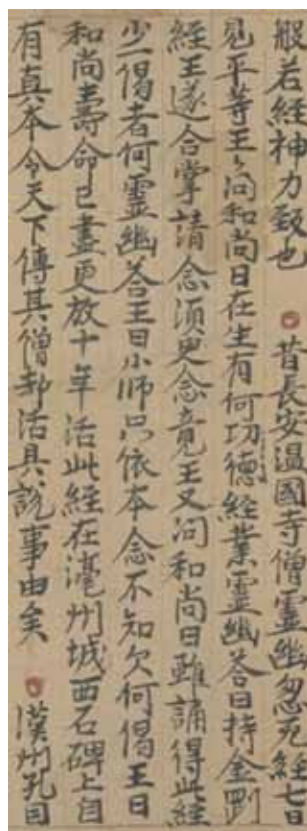 般若經神力致也 昔長安温國寺僧靈幽忽死經七日
見平等王々問和尚曰在生有何功德經業靈幽荅曰持金剛
經王遂合掌請念須臾念竟王又問和尚曰雖誦得此經
少一偈者何靈幽荅王曰小師只依本念不知欠何偈王曰
和尚壽命已盡更放十年活此經在濠州城西石碑上自
有真本令天下傳其僧却活具說事由矣 漢州孔目